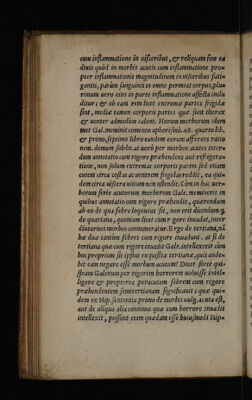 cum inflammatione in uisceribus, & reliquam siue ea
dixit quòd in morbis acutis cum inflammatione pro
pter inflammationis magnitudinem in uisceribus fati-
gantis, parùm sanguinis in omne permeat corpus, plu
rimùm uero eius in parte inflammatione affecta inclu
ditur; & ob eam rem licet extremæ partes frigidæ
sint, mediæ tamen corporis partes quæ sunt thorax
& uenter admodum calent. Horum morborum idem
met Gal. meminit cōmento aphorismi. 48. quarto lib.
& primo, septimo libro eandem eorum afferens ratio
nem. demum subdit. at uerò per morbos acutos inter
dum annotatio cum rigore præhendens aut refrigera-
tione, non solum extremas corporis partes sed etiam
cutem circa costas ac uentrem frigidas reddit, ea qui-
dem circa uiscera uitium non ostendit. Cùm in hac uer-
borum serie acutorum morborum Galē. meminerit in
quibus annotatio cum rigore præhendit, quærendum
ab eo de qua febre loquutus sit, non erit dicendum q̄
de quartana, quoniam licet cum rigore inuadat, inter
diuturnos morbos connumeratur. Ergo de tertiana, nā
hæ duæ tantùm febres cum rigore inuadunt. at si de
tertiana quæ cum rigore inuadit Galē. intellexerit cùm
hoc proprium sit ipsius exquisitæ tertianæ, quis aude-
bit eam negare esse morbum acutum? Dicet fortè qui-
spiam Galenum per rigorem horrorem uoluisse intel-
ligere & propterea paracutam febrem cum rigore
præhendentem semitertianam significauit: quæ qui-
dem ex Hip. sententia primo de morbis uulg. acuta est,
aut de aliqua alia continua quæ cum horrore inuadit
intellexit, possunt enim quædam esse huiusmodi Hip-